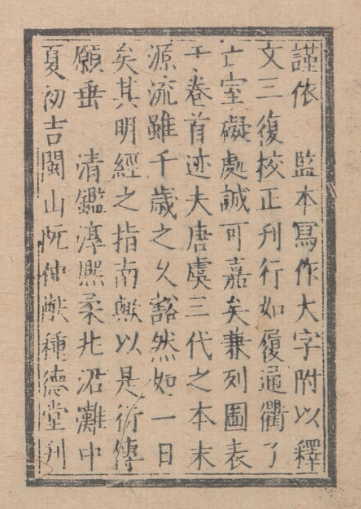 謹依　監本寫作大字附以釋
文三復校正刊行如履通衢了
亡窒礙處誠可嘉矣兼列圖表
于卷首迹夫唐虞三代之本末
源流雖千歲之久豁然如一日
矣其明經之指南歟以是衍傳
願垂　清鑑淳熙柔兆涒灘中
夏初吉閩山阮仲猷種德堂刊